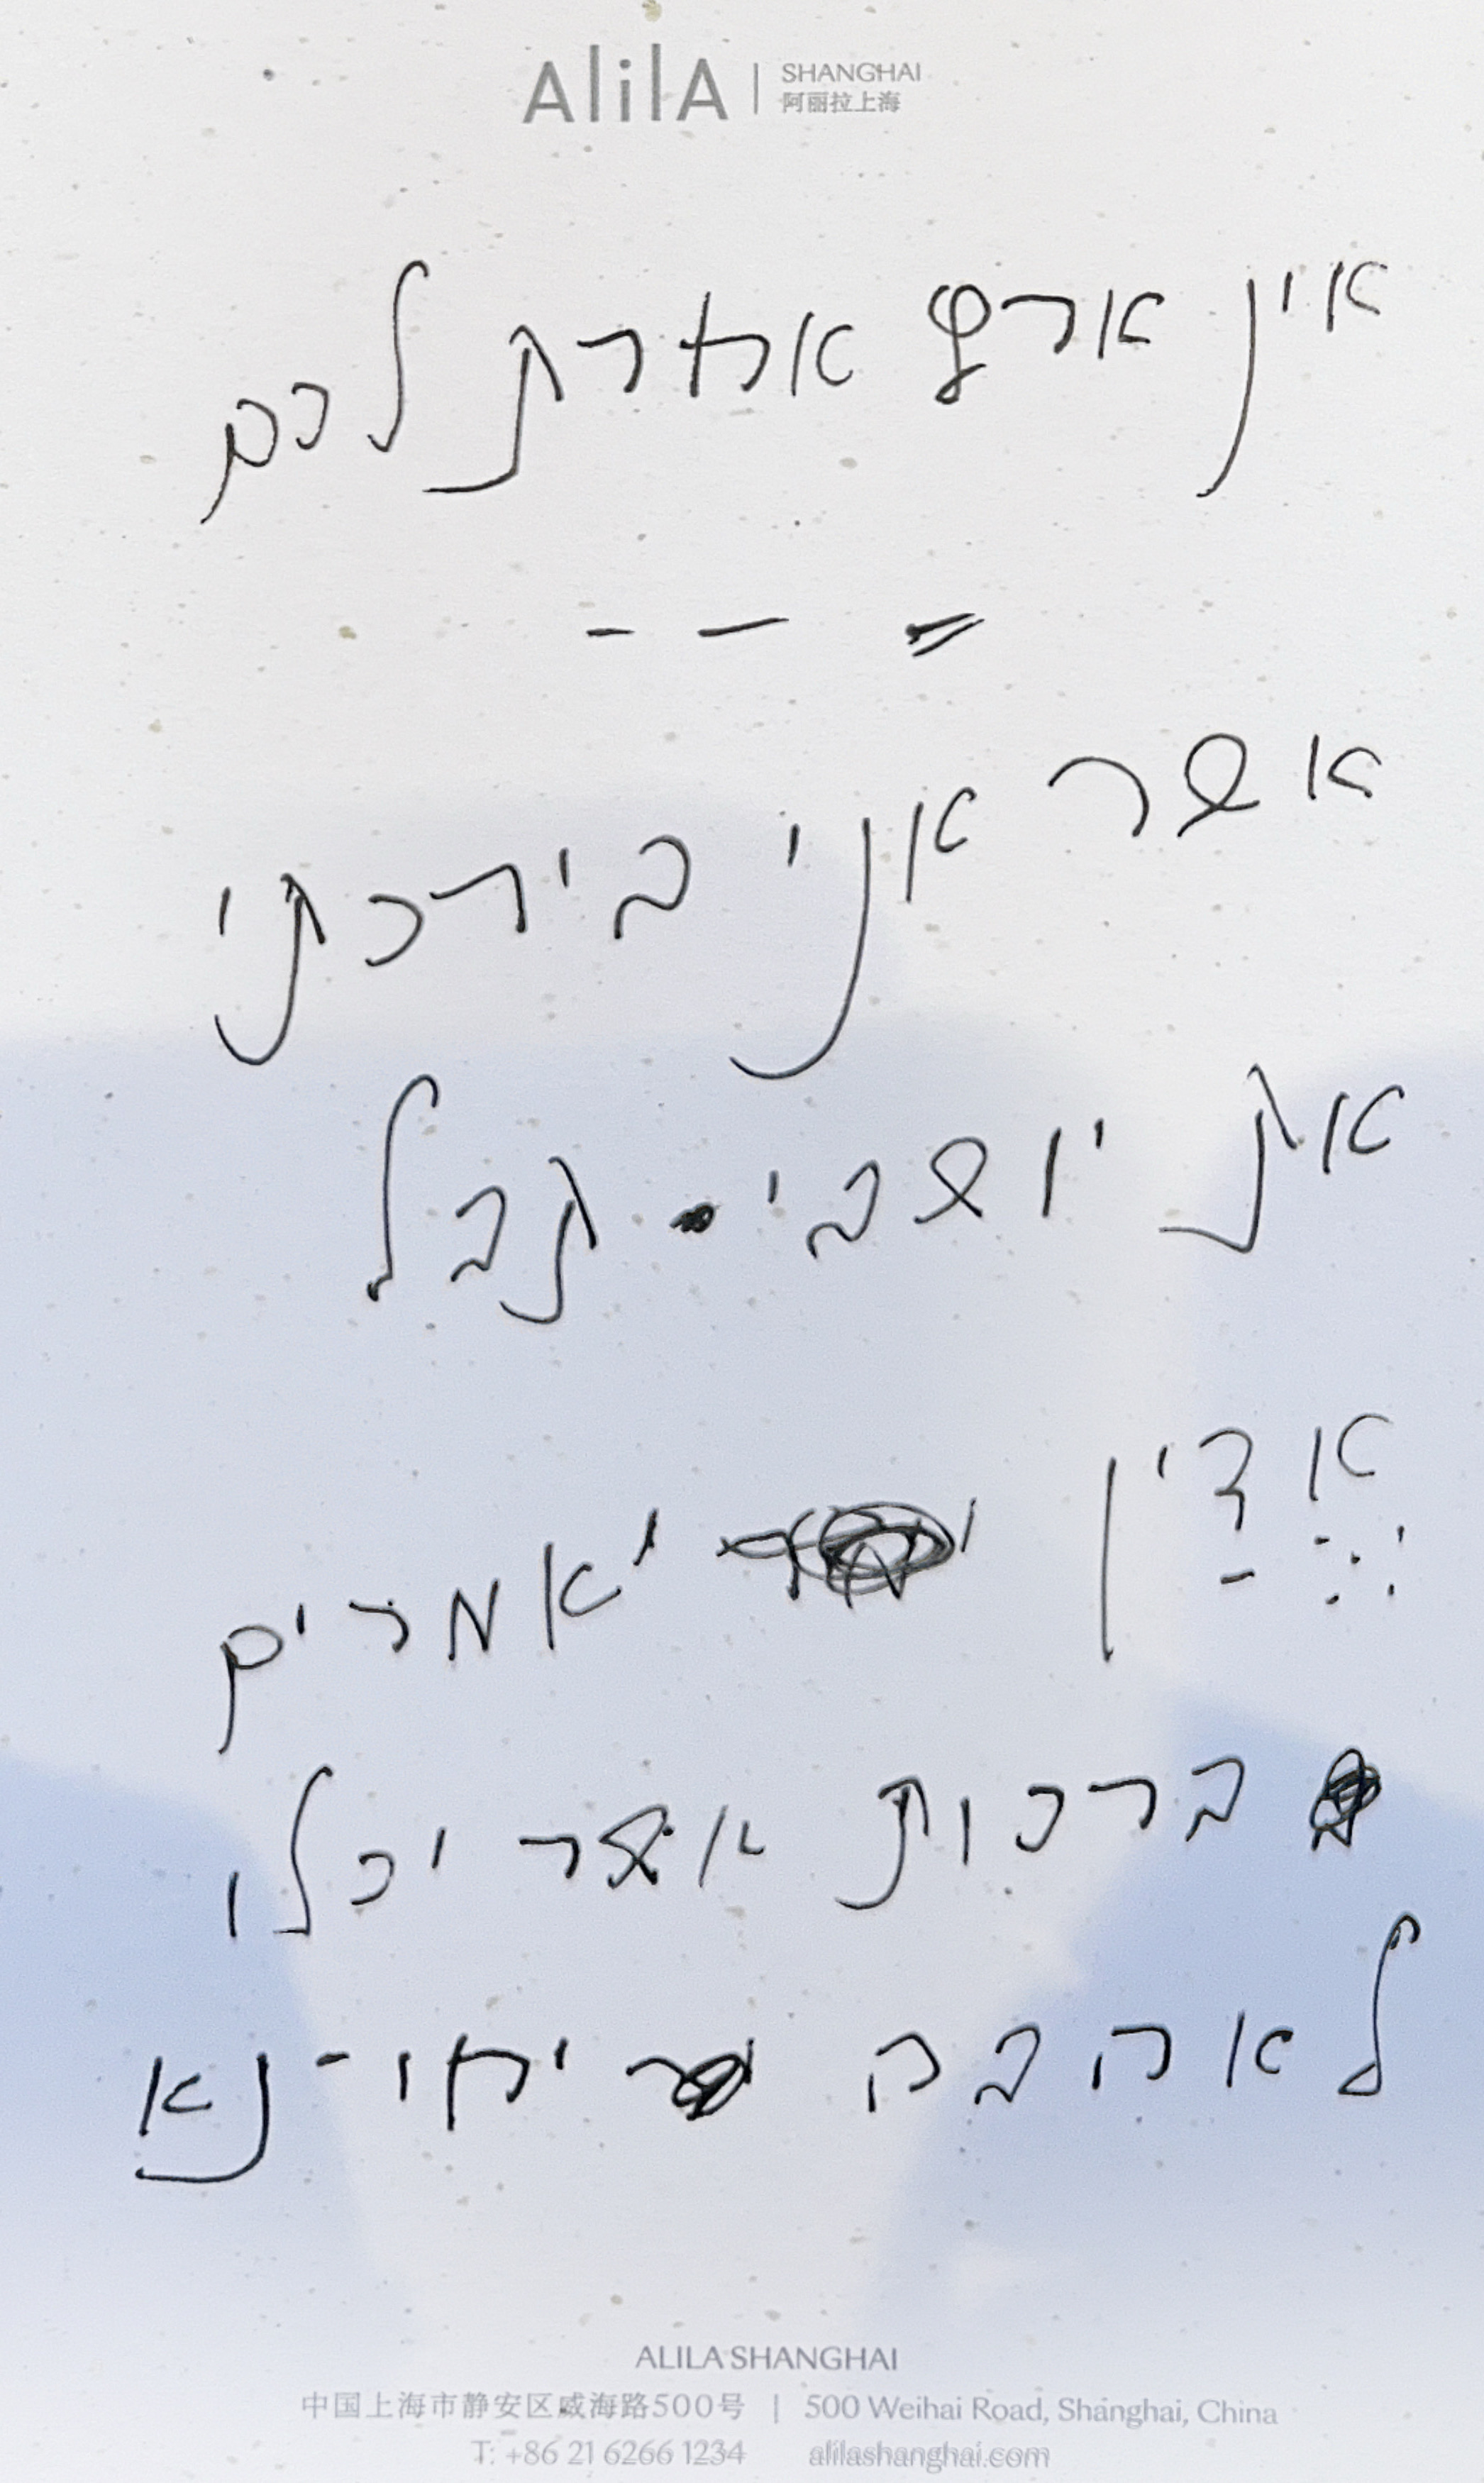 AlilA | SHANGHAI
阿丽拉上海
אין ארץ אחרת לכם
= — -
אשר אני בירכתי
את יושבי תבל
אדין יאמרים
ברכות אשר יכלו
לאהבה יחו-נא
ALILA SHANGHAI
中国上海市静安区威海路500号 | 500 Weihai Road, Shanghai, China
T: +86 21 6266 1234 alilashanghai.com